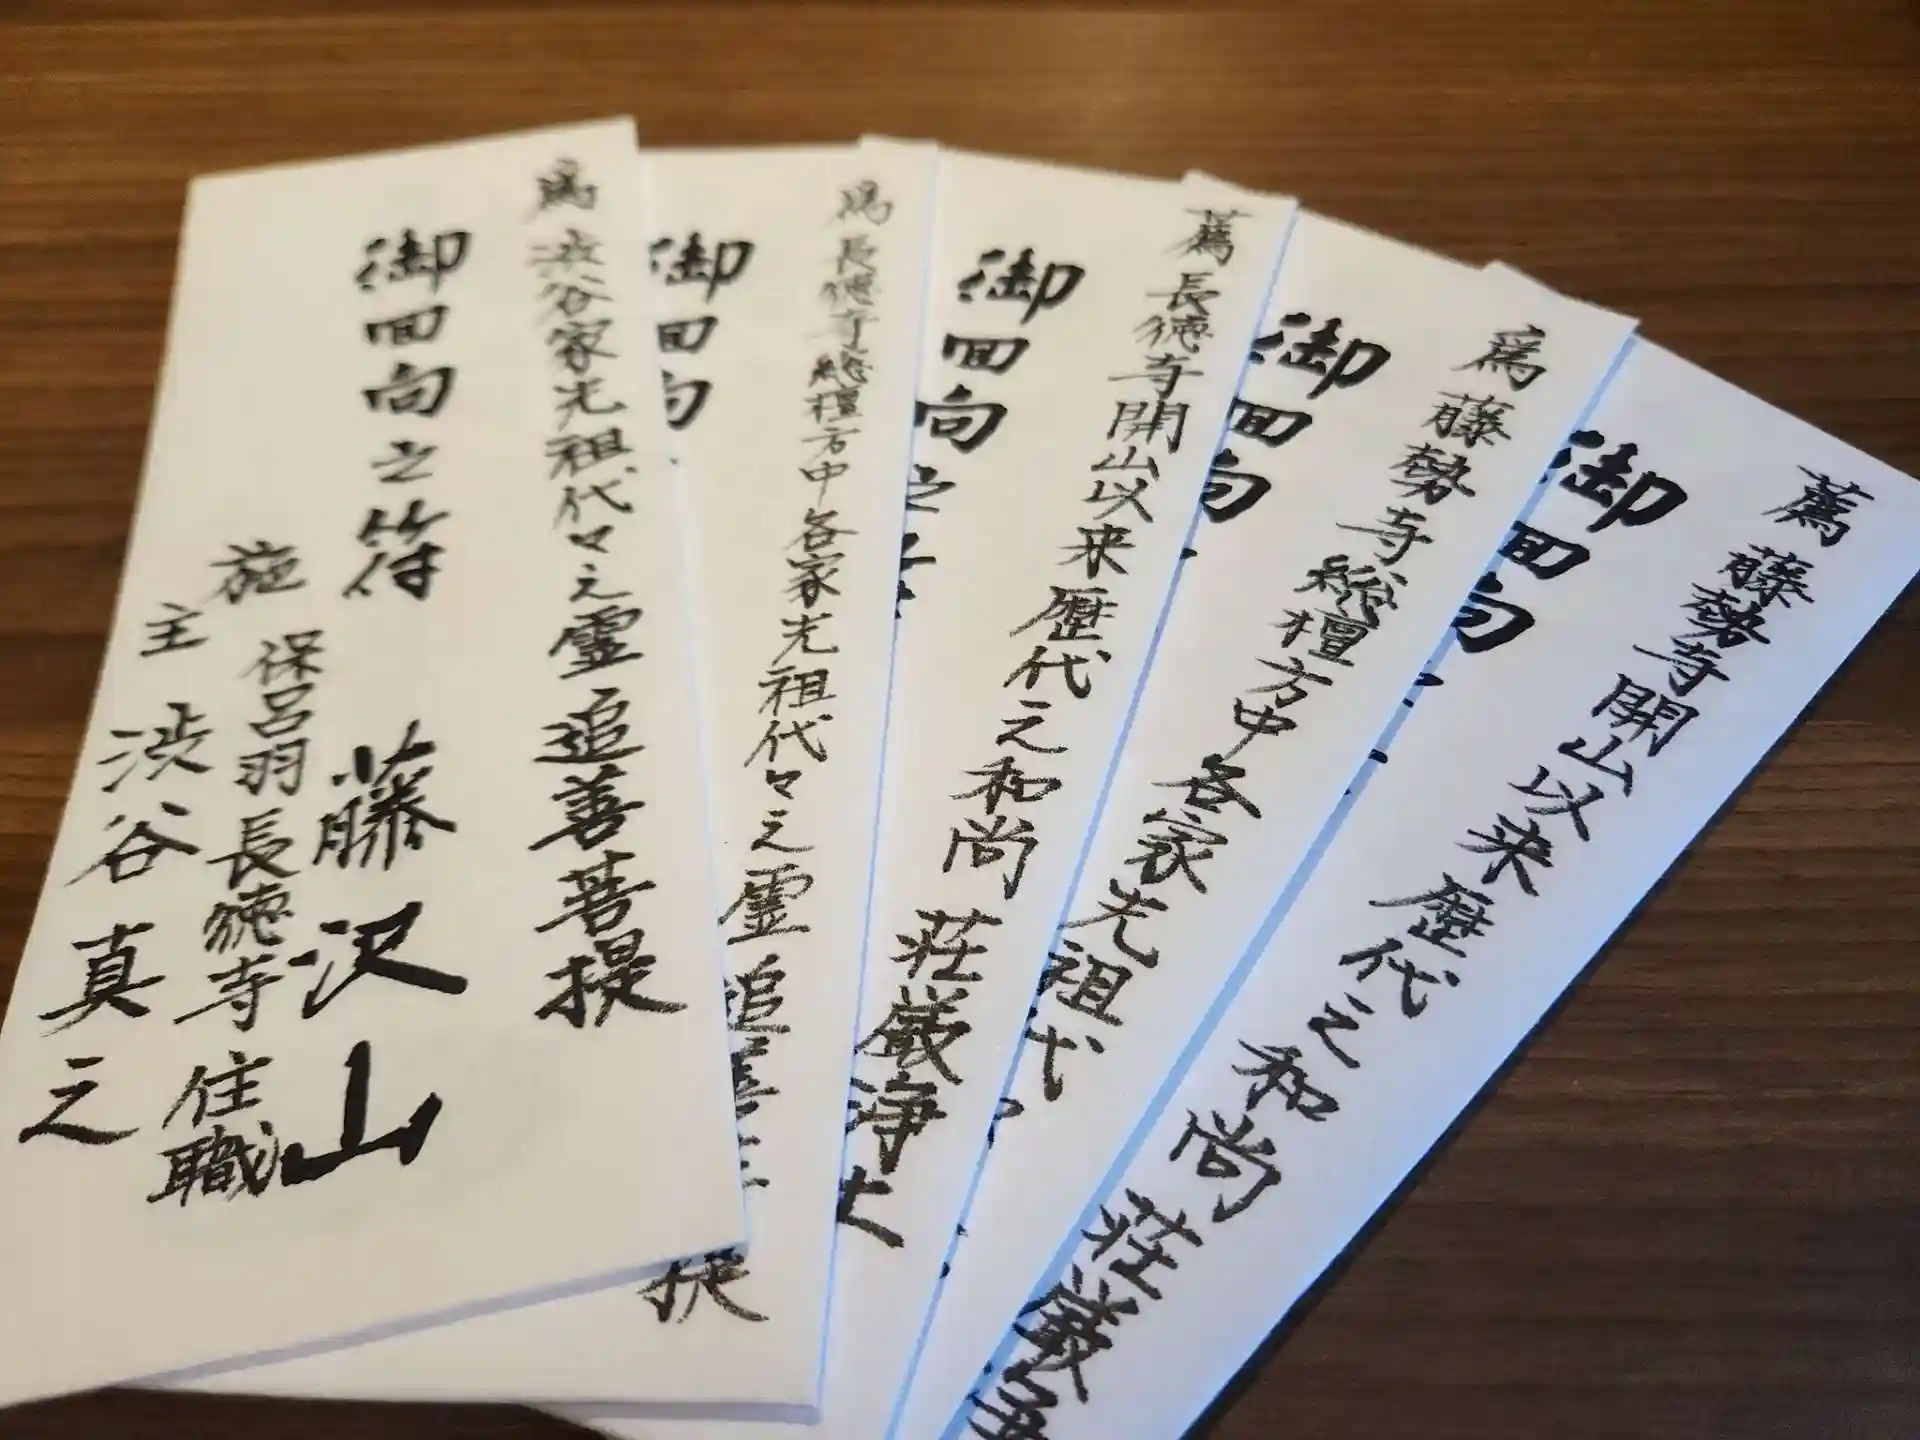 為 渋谷家先祖代々之霊 追善菩提
御回向之符 藤沢山
保呂羽 長徳寺 住職
施主 渋谷真之
為 長徳寺総檀方中各家先祖代々之霊 追善
提
御回向
薦 長徳寺開山以来歴代之和尚 荘厳浄土
御回向之
為 藤勢寺総檀方中各家先祖代
御回向
薦 藤勢寺開山以来歴代之和尚 荘厳
御回向